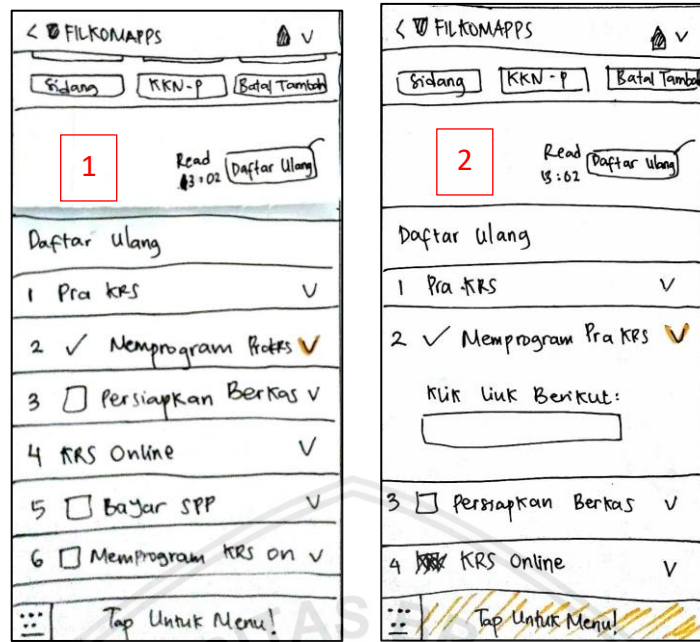 < FILKOMAPPS
Sidang KKN-P Batal Tambah
1
Read
13:02
Daftar Ulang
Daftar Ulang
1 Pra KRS
2 ✓ Memprogram PraKRS
3 Persiapkan Berkas
4 KRS Online
5 Bayar SPP
6 Memprogram KRS on
Tap Untuk Menu!
< FILKOMAPPS
Sidang KKN-P Batal Tambah
2
Read
13:02
Daftar Ulang
Daftar Ulang
1 Pra KRS
2 ✓ Memprogram Pra KRS
Klik Link Berikut:
3 Persiapkan Berkas
4 KRS Online
Tap Untuk Menu!